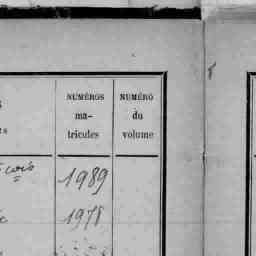 NUMÉROS
ma-
tricules
NUMÉRO
du
volume
1989
1978